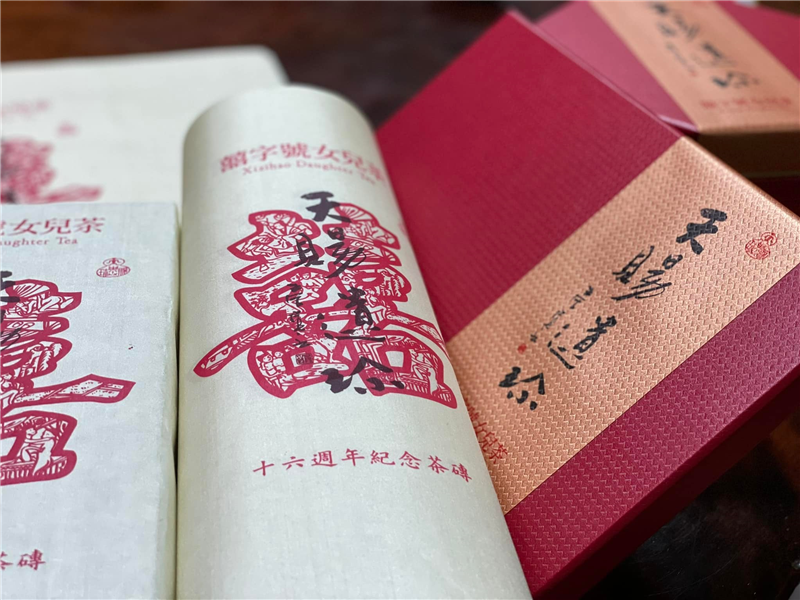 字號女兒茶
Xizihao Daughter Tea
天賜遺珍
十六週年紀念茶磚
女兒茶
ughter Tea
茶磚
天賜遺珍
女兒茶